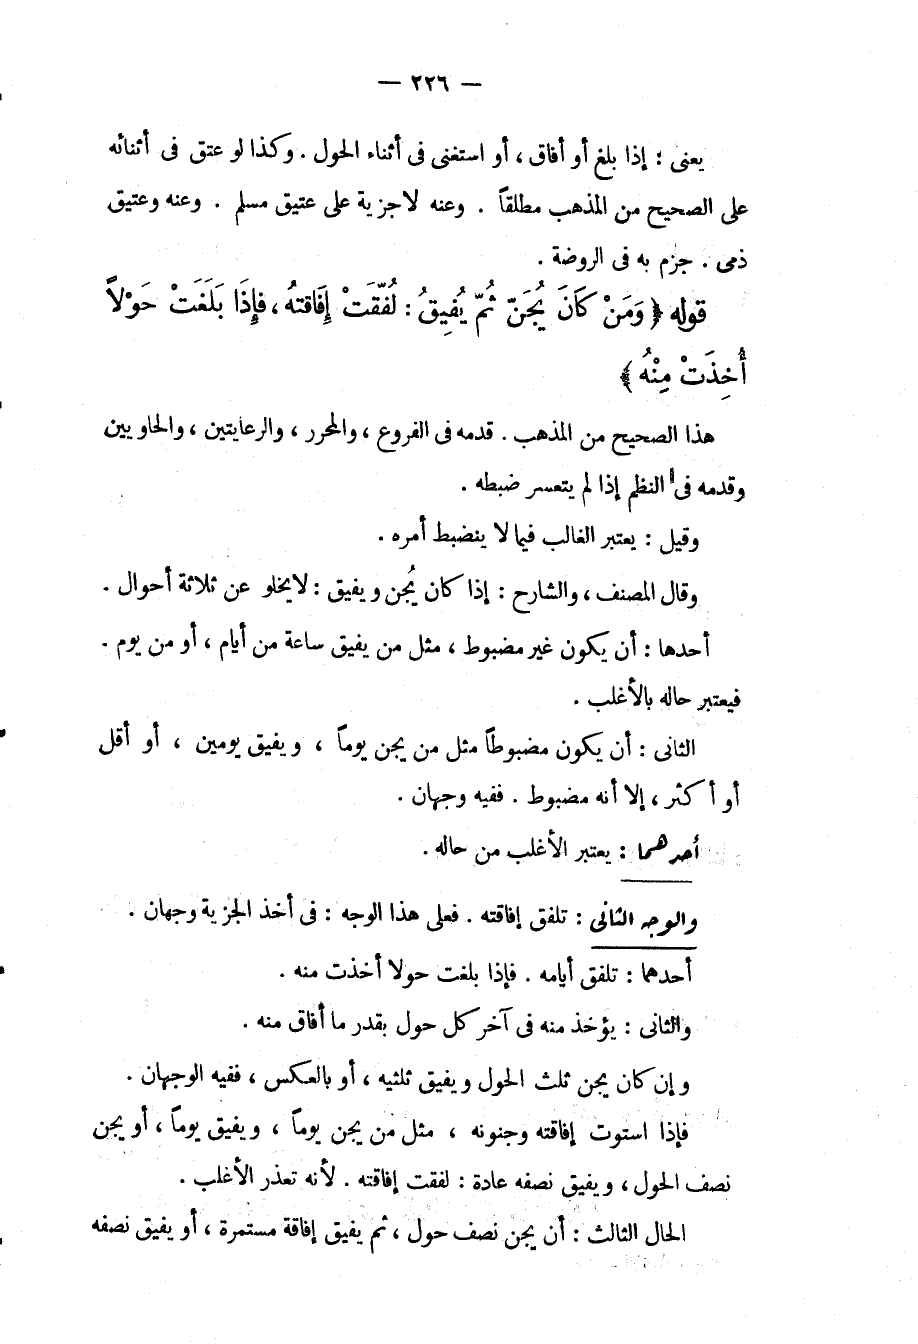 — ٢٢٦ —
يعنى : إذا بلغ أو أفاق ، أو استغنى فى أثناء الحول . وكذا لو عتق فى أثنائه
على الصحيح من المذهب مطلقاً . وعنه لا جزية على عتيق مسلم . وعنه وعتيق
ذمى . جزم به فى الروضة .
قوله ﴿ وَمَنْ كَانَ يُجَنّ ثُمّ يُفِيقُ : لُفِّقَتْ إِفَاقتهُ ، فإِذَا بَلَغَتْ حَوْلاً
أُخِذَتْ مِنْهُ ﴾
هذا الصحيح من المذهب . قدمه فى الفروع ، والمحرر ، والرعايتين ، والحاويين
وقدمه فى النظم إذا لم يتعسر ضبطه .
وقيل : يعتبر الغالب فيما لا ينضبط أمره .
وقال المصنف ، والشارح : إذا كان يُجن ويفيق : لا يخلو عن ثلاثة أحوال .
أحدها : أن يكون غير مضبوط ، مثل من يفيق ساعة من أيام ، أو من يوم .
فيعتبر حاله بالأغلب .
الثانى : أن يكون مضبوطاً مثل من يجن يوماً ، ويفيق يومين ، أو أقل
أو أكثر ، إلا أنه مضبوط . ففيه وجهان .
أحدهما : يعتبر الأغلب من حاله .
والوجه الثانى : تلفق إفاقته . فعلى هذا الوجه : فى أخذ الجزية وجهان .
أحدهما : تلفق أيامه . فإذا بلغت حولا أخذت منه .
والثانى : يؤخذ منه فى آخر كل حول بقدر ما أفاق منه .
وإن كان يجن ثلث الحول ويفيق ثلثيه ، أو بالعكس ، ففيه الوجهان .
فإذا استوت إفاقته وجنونه ، مثل من يجن يوماً ، ويفيق يوماً ، أو يجن
نصف الحول ، ويفيق نصفه عادة : لفقت إفاقته . لأنه تعذر الأغلب .
الحال الثالث : أن يجن نصف حول ، ثم يفيق إفاقة مستمرة ، أو يفيق نصفه